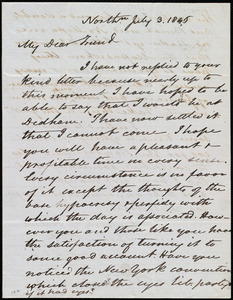 Northn July 3. 1845
My Dear Friend
I have not replied to your
kind letter because nearly up to
this moment I have hoped to be
able to say that I would be at
Dedham. I have now settled it
that I cannot come. I hope
you will have a pleasant &
profitable time in every sense.
Every circumstance is in favor
of it except the thoughts of the
base hypocrisy & perfidy with
which the day is associated. How
ever you and those like you have
the satisfaction of turning it to
some good account. Have you
noticed the New York convention
which closed the eyes
if it had eyes?